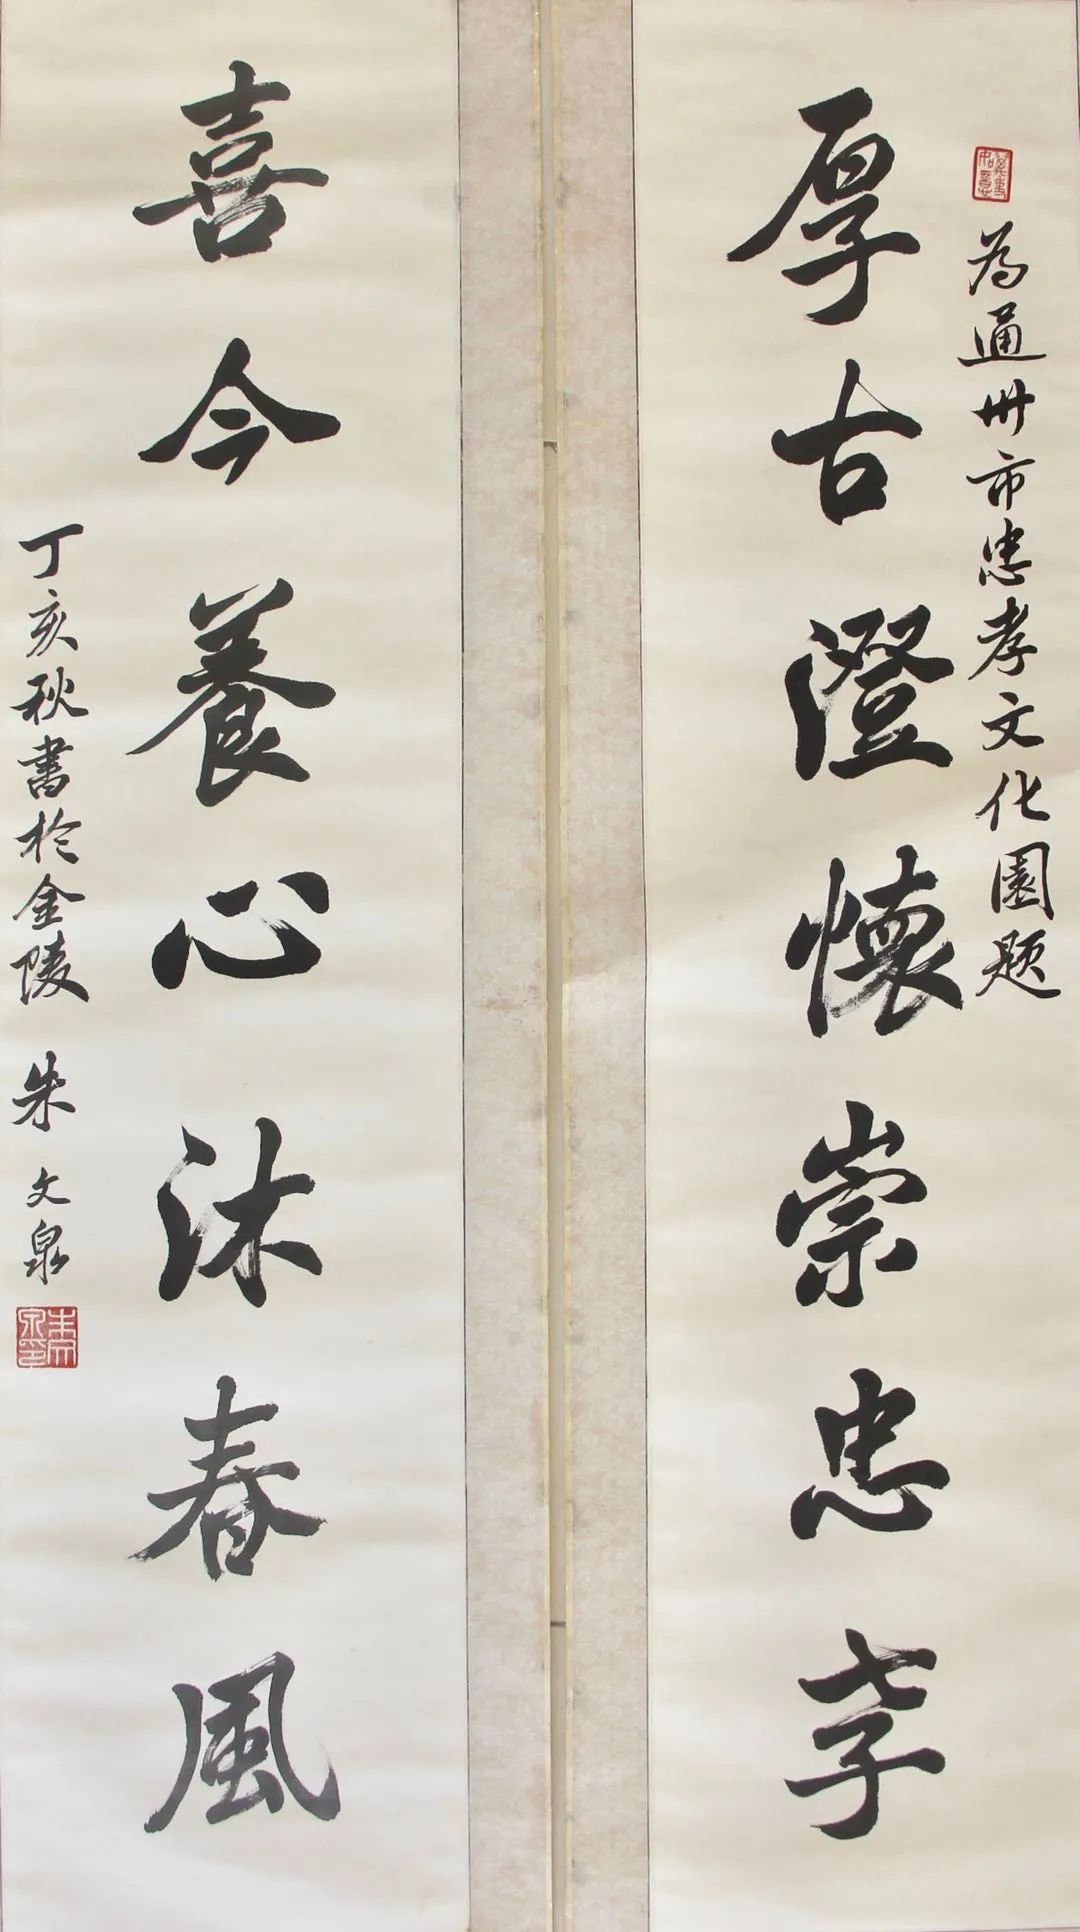 为通州市忠孝文化園题
厚古澄懷崇忠孝
喜今養心沐春風
丁亥秋書於金陵 朱文泉